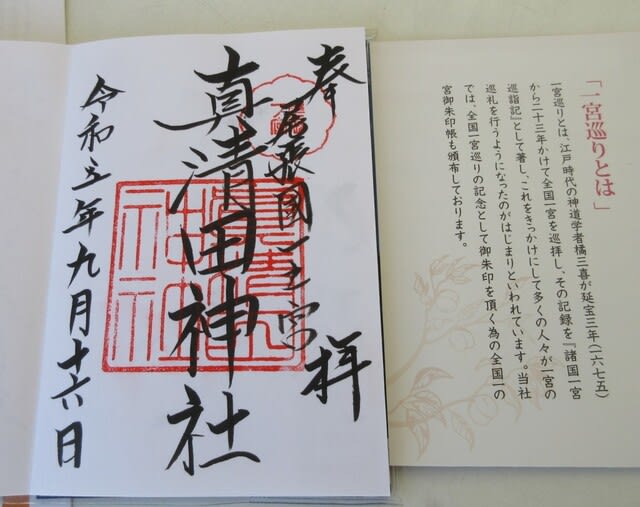 「一宮巡りとは」
一宮巡りとは、江戸時代の神道学者橘三喜が延宝三年(一六七五)
から二十三年かけて全国一宮を巡拝し、その記録を『諸国一宮
巡詣記』として著し、これをきっかけにして多くの人々が一宮の
巡礼を行うようになったのがはじまりといわれています。当社
では、全国一宮巡りの記念として御朱印を頂く為の全国一の
宮御朱印帳も頒布しております。
奉拝
尾張國一之宮
真清田神社
令和五年九月十六日